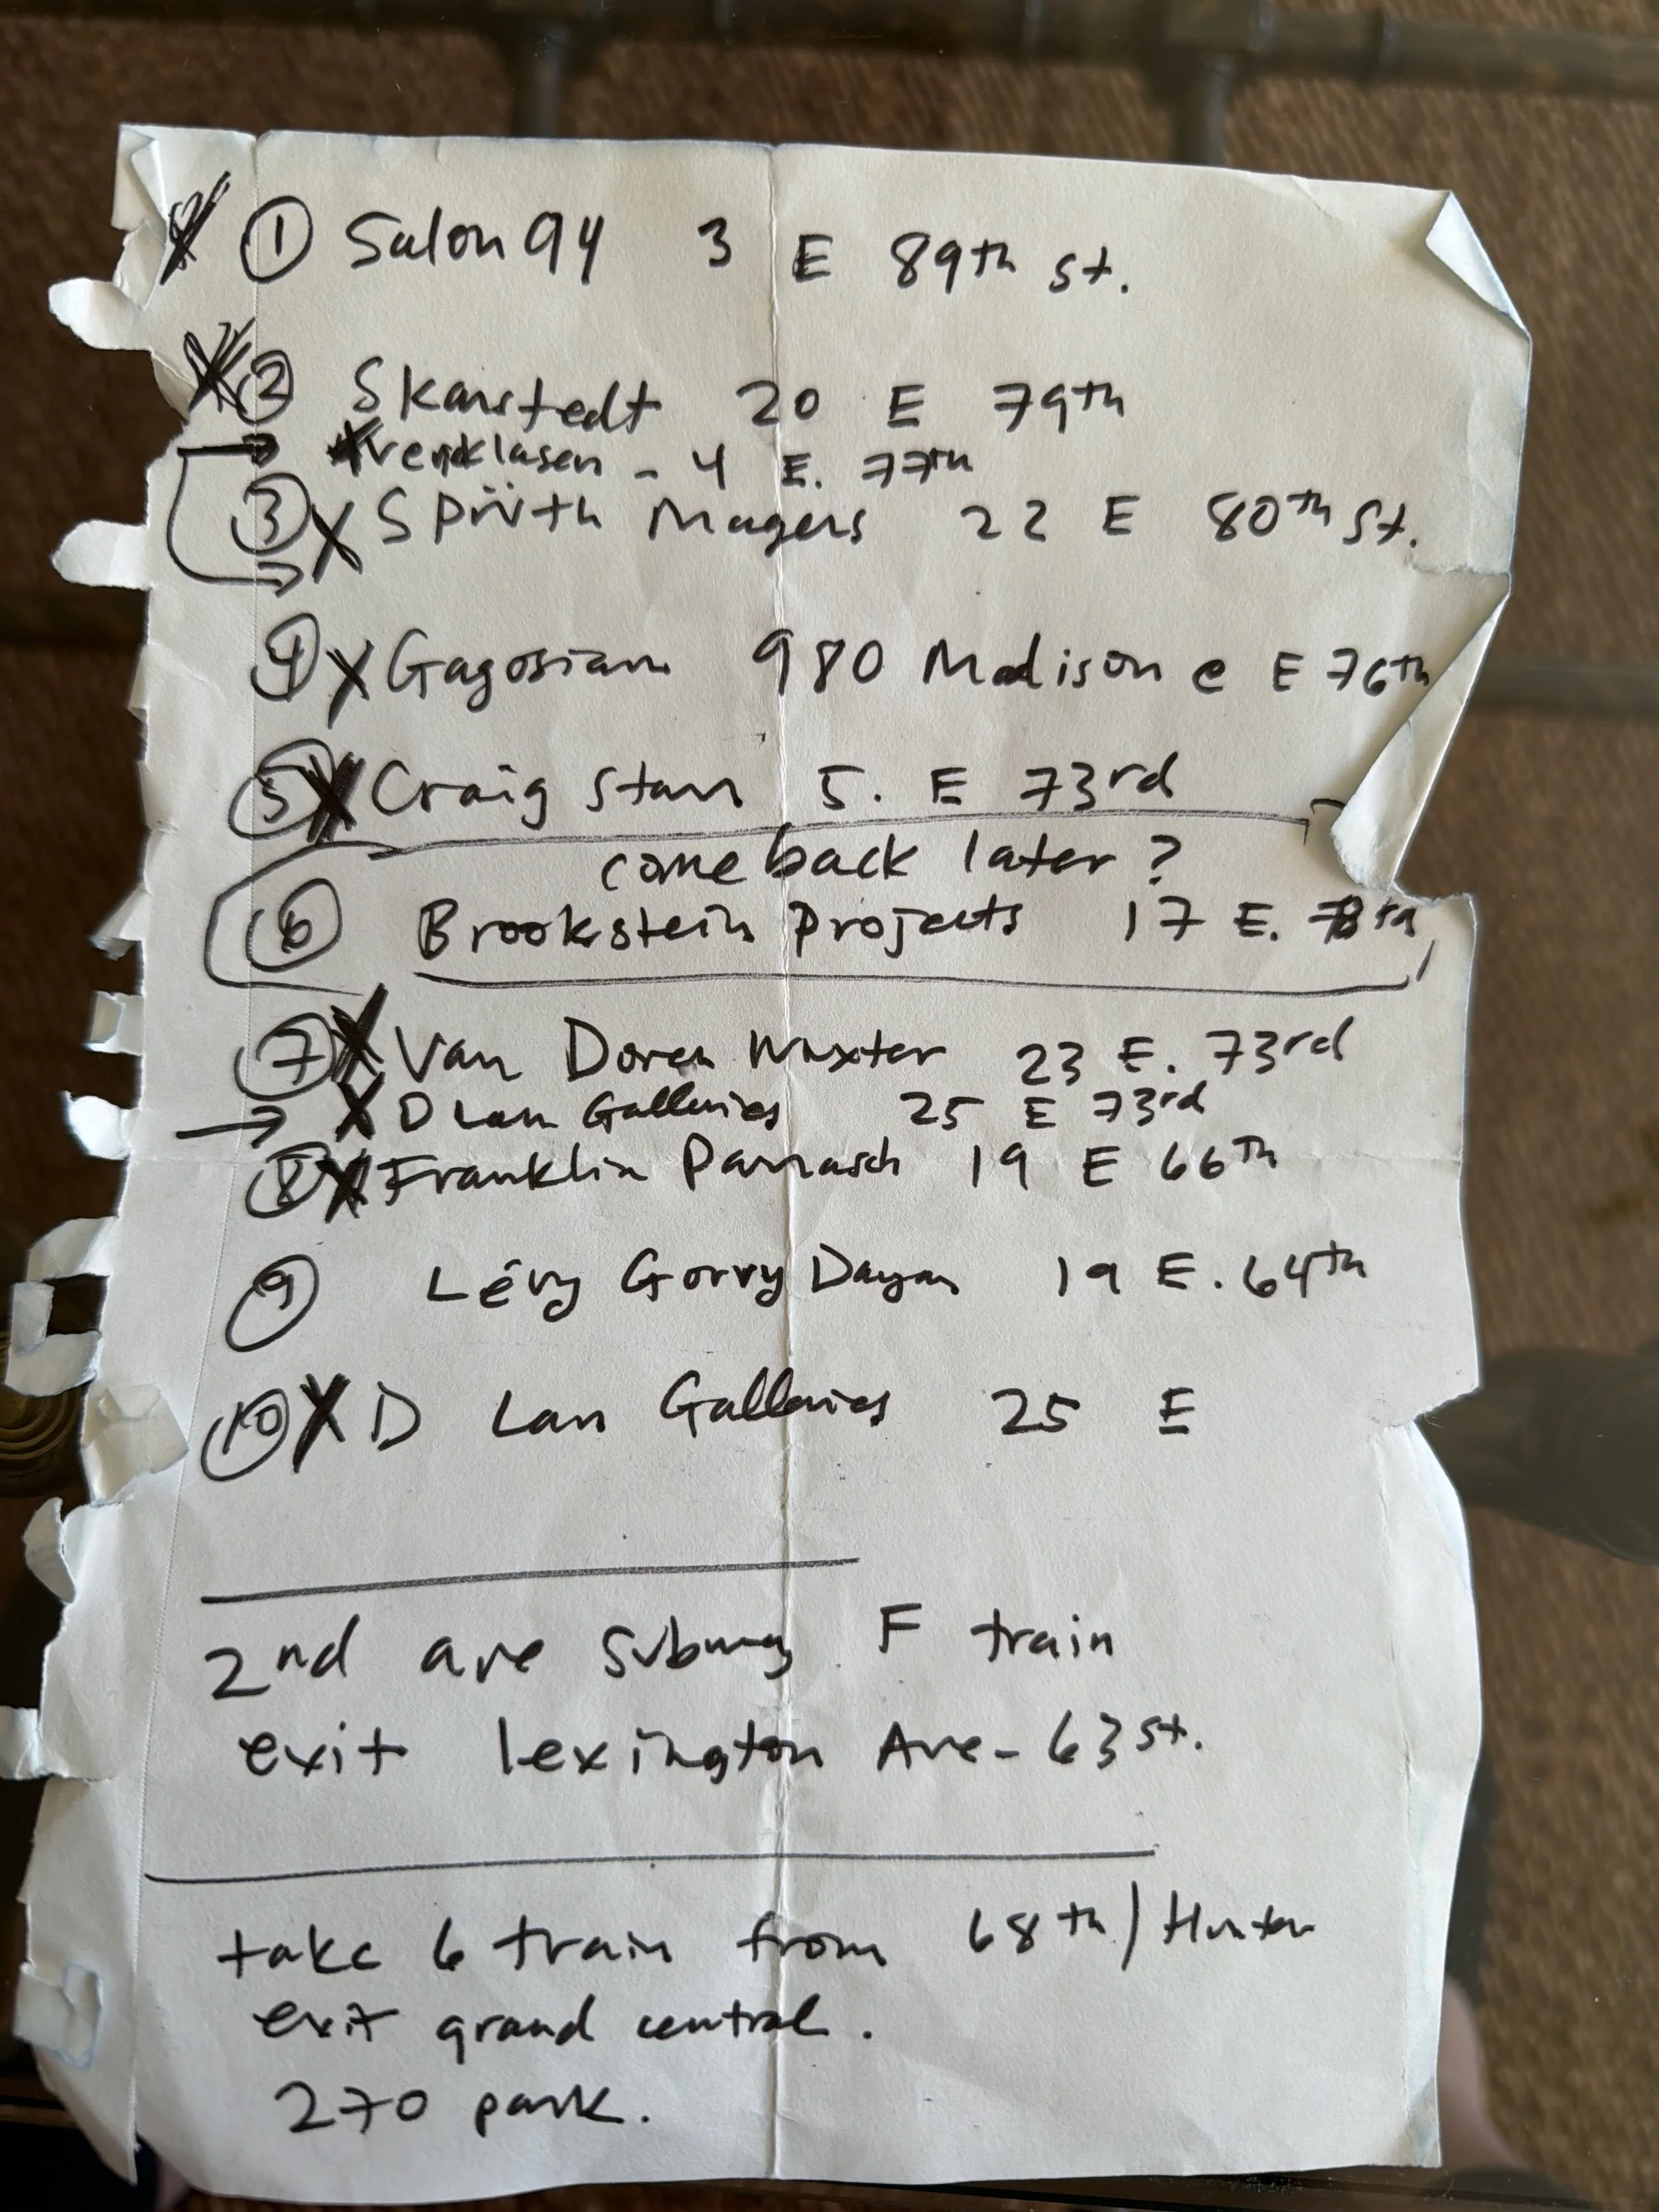 ① Salon 94 3 E 89th St.
② Skarstedt 20 E 79th
Venklasen - 4 E. 77th
③ X Sprüth Magers 22 E 80th St.
④ X Gagosian 980 Madison @ E 76th
⑤ X Craig Starr 5. E 73rd
come back later?
⑥ Brookstein Projects 17 E. 78th
⑦ X Van Doren Waxter 23 E. 73rd
→ X D Lan Galleries 25 E 73rd
⑧ X Franklin Parrasch 19 E 66th
⑨ Lévy Gorvy Dayan 19 E. 64th
⑩ X D Lan Galleries 25 E
2nd ave subway F train
exit lexington Ave - 63 st.
take 6 train from 68th / Hunter
exit grand central.
270 park.